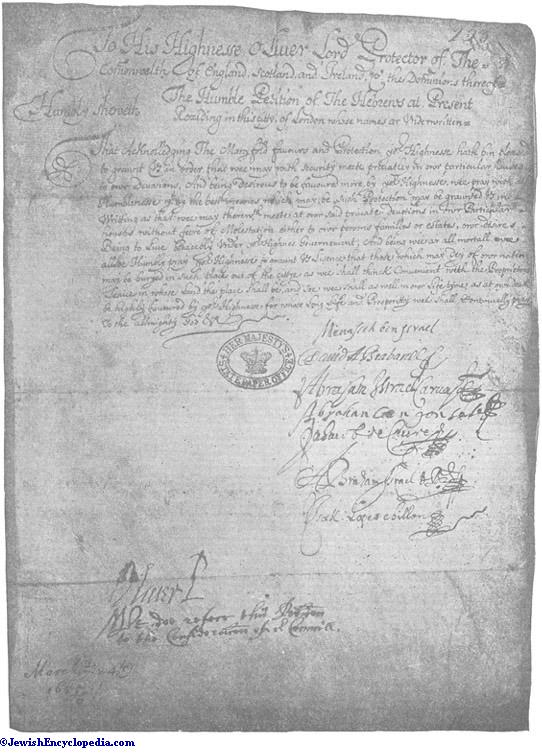 To His Highnesse Oliver Lord Protector of The
Comonwelth of England, Scotland, and Ireland, & the Dominions thereof
The Humble Petition of The Hebrews at Present
Humbly Sheweth
Reziding in this citty of London whose names ar Underwritten
That Acknolledging The Many fold favours and Protection yor Highnesse hath bin pleased
to graunt Us in order that wee may with security meete privatley in our particular houses
to our Devosions, And being desirous to be favoured more by yor Highnesse wee pray with
Humblenesse by the best meanes which may be Such Protection may be graunted Us in
Writting as that wee may therewth meete at our said private devotions in our Particular
houses without feere of Molestation either to our persons families or estates, our desires
Being to Live Peacebly Under yor Highnes Governement, And being wee ar all mortall wee
allsoe Humbly pray yor Highnesse to graunt Us License that those which may dey of our nation
may be buryed in such place out of the cittye as wee shall thinck Convenient with the Proprietors
Leave in whose Land this place shall be, and soe wee shall as well in our Lifetyme as at our death
be highly favoured by yor Highnesse for whose Long Life and Prosperity wee shall Continually pray
To the allmighty God
Menasseh ben Israel
HER MAJESTY'S STATE PAPER OFFICE
David Abrabanel
Abraham Israel Carvajal
Abraham Coen Gonzales
Jahacob de Caceres
Abraham Israel
Isak Lopes Chillon
Oliver P
Wee doe referr this Peticon
to the Consideracon of ye Councill.
March
©JewishEncyclopedia.com